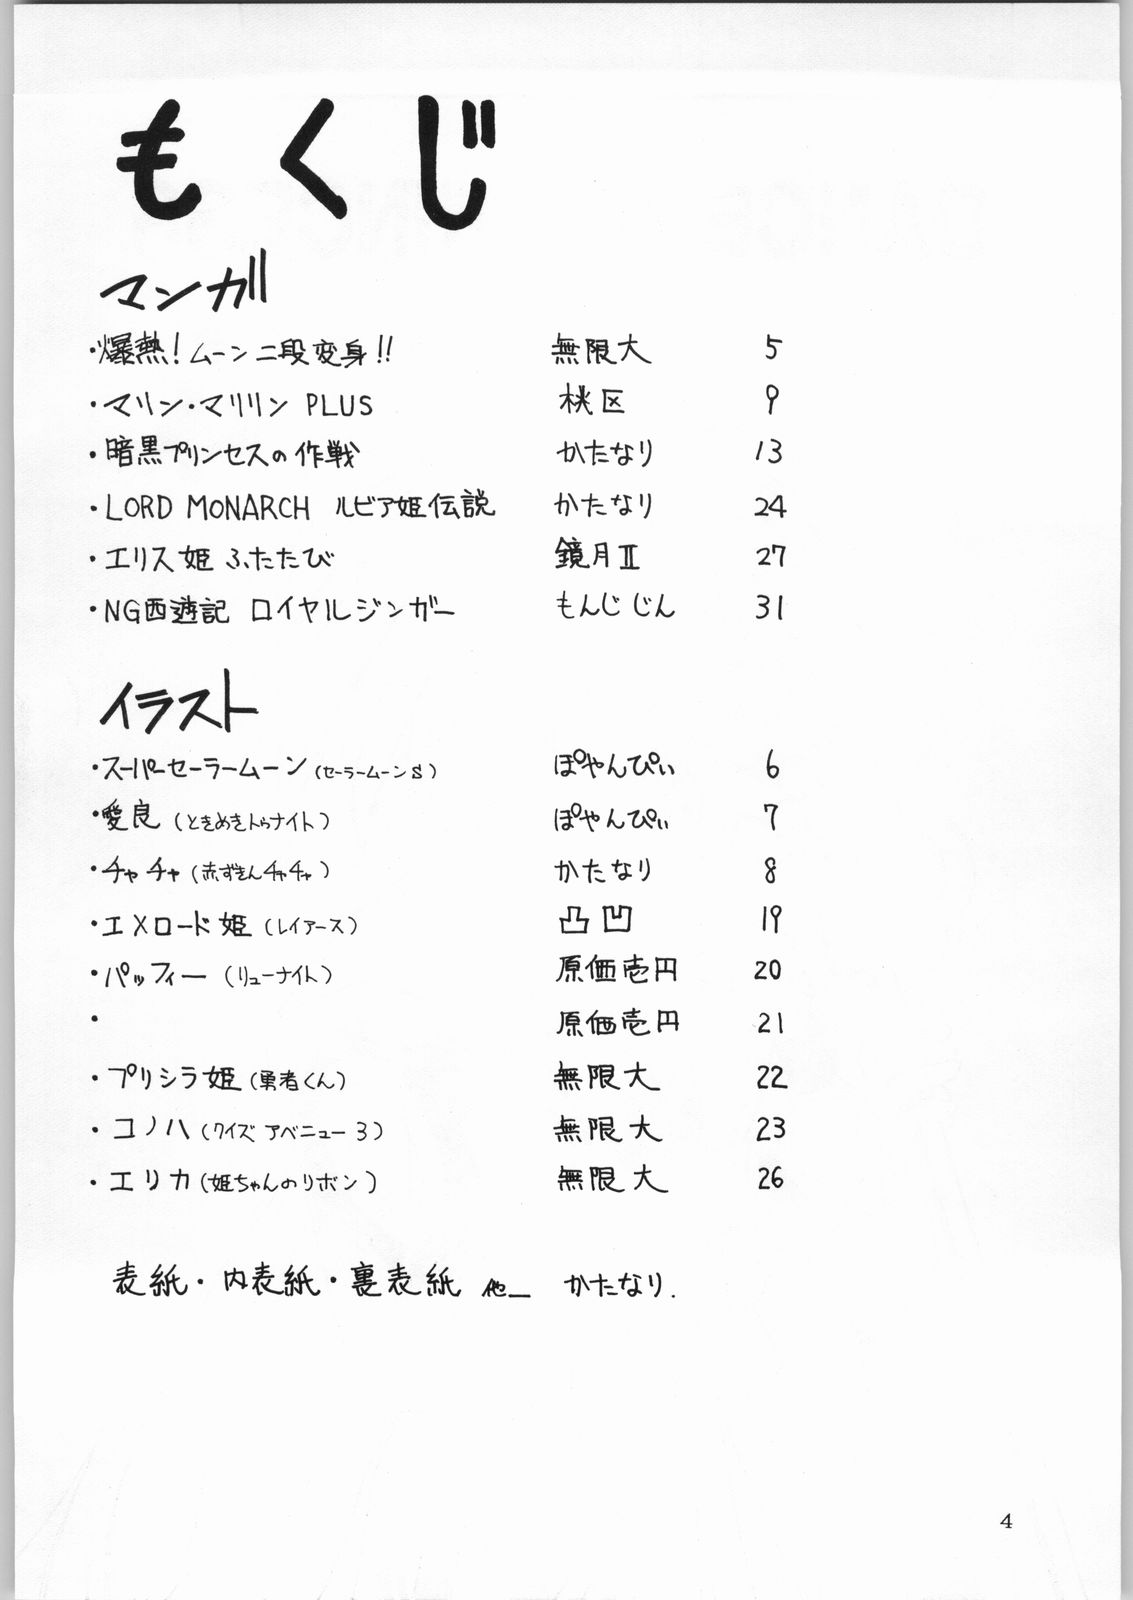 もくじ
マンガ
・爆熱!ムーン二段変身!! 無限大 5
・マリン・マリリン PLUS 桃区 9
・暗黒プリンセスの作戦 かたなり 13
・LORD MONARCH ルビア姫伝説 かたなり 24
・エリス姫ふたたび 鏡月II 27
・NG西遊記 ロイヤルジンガー もんじじん 31
イラスト
・スーパーセーラームーン(セーラームーンS) ぽやんぴぃ 6
・愛良(ときめきトゥナイト) ぽやんぴぃ 7
・チャチャ(赤ずきんチャチャ) かたなり 8
・エメロード姫(レイアース) 凸凹 19
・パッフィー(リューナイト) 原価壱円 20
・ 原価壱円 21
・プリシラ姫(勇者くん) 無限大 22
・コノハ(クイズアベニュー3) 無限大 23
・エリカ(姫ちゃんのリボン) 無限大 26
表紙・内表紙・裏表紙 他_ かたなり.
4